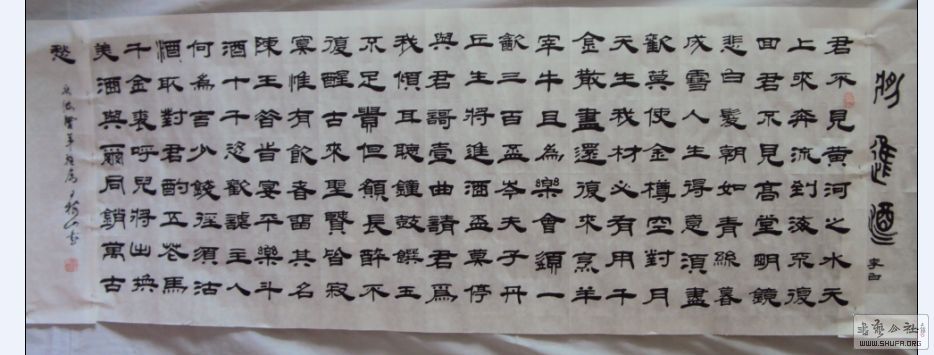 将進酒
李白
君不見黃河之水天
上來奔流到海不復
回君不見高堂明鏡
悲白髮朝如青絲暮
成雪人生得意須盡
歡莫使金樽空對月
天生我材必有用千
金散盡還復來烹羊
宰牛且為樂會須一
飲三百盃岑夫子丹
丘生將進酒盃莫停
與君謌壹曲請君爲
我傾耳聽鐘鼓饌玉
不足貴但願長醉不
復醒古來聖賢皆寂
寞惟有飲者畱其名
陳王昔旹宴平樂斗
酒十千恣歡謔主人
何為言少錢徑須沽
酒取對君酌五花馬
千金裘呼兒將出換
美酒與爾同銷萬古
愁
书艺公社
WWW.SHUFA.ORG